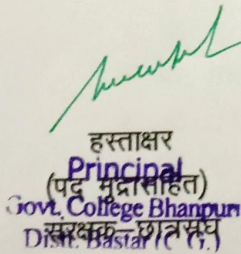 हस्ताक्षर
Principal
(पद मुद्रासहित)
Govt. College Bhanpuri
संरक्षक छात्रसंघ
Distt. Bastar (C G.)